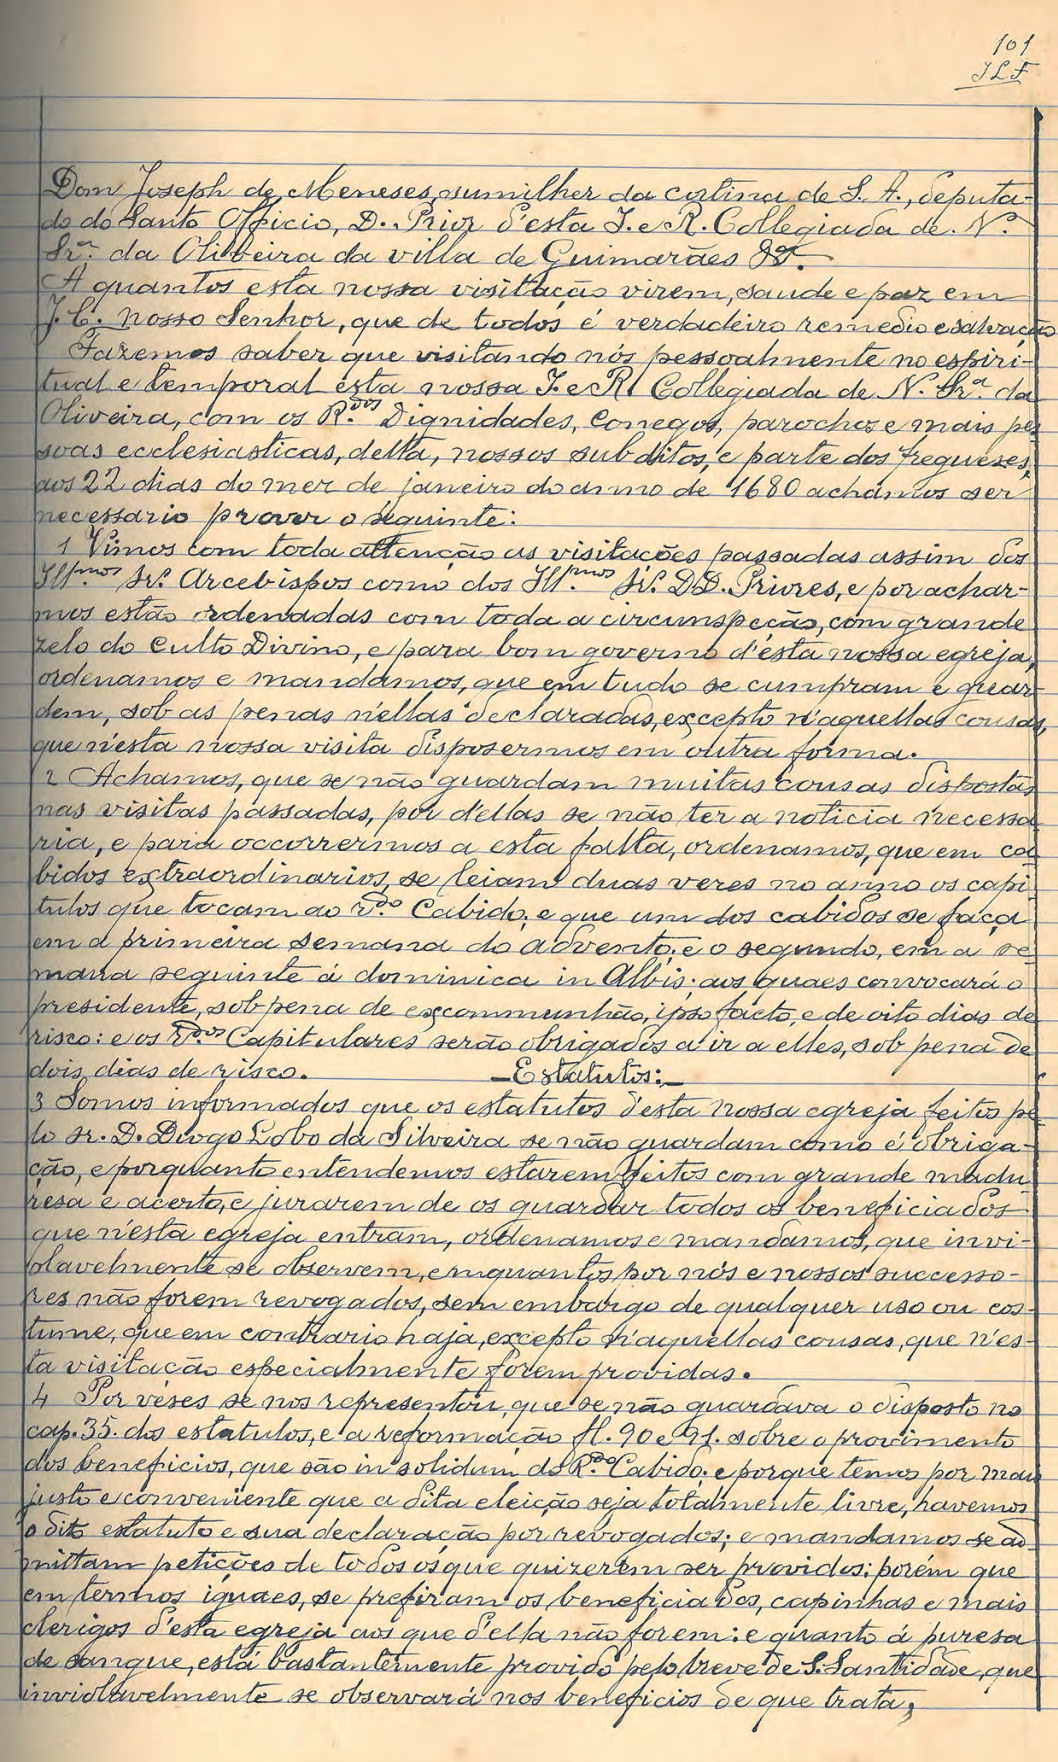 101
JLF
Dom Joseph de Meneses, sumilher da cortina de S. A., deputa-
do do Santo Officio, D. Prior d'esta I. e R. Collegiada de N.
Sr.ª da Oliveira da villa de Guimarães &ª.
A quantos esta nossa visitação virem, saude e paz em
J. C. nosso Senhor, que de todos é verdadeiro remedio e salvação
Fazemos saber que visitando nós pessoalmente no espiri-
tual e temporal esta nossa I. e R. Collegiada de N. Sr.ª da
Oliveira, com os R.dos Dignidades, Conegos, parochos e mais pes
soas ecclesiasticas, della, nossos subditos, e parte dos freguezes,
aos 22 dias do mez de janeiro do anno de 1680 achámos ser
necessario prover o seguinte:
1 Vimos com toda attenção as visitações passadas assim dos
Ill.mos Sr.s Arcebispos como dos Ill.mos Sr.s D.D. Priores, e por achar-
mos estão ordenadas com toda a circunspeção, com grande
zelo do Culto Divino, e para bom governo d'esta nossa egreja,
ordenamos e mandamos, que em tudo se cumpram e guar-
dem, sob as penas n'ellas declaradas, excepto n'aquellas cousas,
que n'esta nossa visita disposermos em outra forma.
2 Achamos, que se não guardam muitas cousas dispostas
nas visitas passadas, por d'ellas se não ter a noticia necessa
ria, e para occorrermos a esta falta, ordenamos, que em ca
bidos extraordinarios, se leiam duas vezes no anno os capi
tulos que tocam ao r.do Cabido; e que um dos cabidos se faça
em a primeira semana do advento, e o segundo, em a se
mana seguinte á dominica in Albis; aos quaes convocará o
presidente, sob pena de excommunhão, ipso facto, e de oito dias de
risco: e os R.dos Capitulares serão obrigados a ir a elles, sob pena de
dois dias de risco. — Estatutos: —
3 Somos informados que os estatutos d'esta nossa egreja feitos pe
lo sr. D. Diogo Lobo da Silveira se não guardam como é obriga-
ção, e porquanto entendemos estarem feitos com grande madu
resa e acerto, e jurarem de os guardar todos os beneficiados
que n'esta egreja entram, ordenamos e mandamos, que invi-
olavelmente se observem, emquanto por nós e nossos successo-
res não forem revogados, sem embargo de qualquer uso ou cos-
tume, que em contrario haja, excepto n'aquellas cousas, que n'es-
ta visitação especialmente forem providas.
4 Por vêses se nos representou, que se não guardava o disposto no
cap. 35. dos estatutos, e a reformação fl. 90 e 91. sobre o provimento
dos beneficios, que são in solidum do R.do Cabido; e porque temos por mais
justo e conveniente que a dita eleição seja totalmente livre, havemos
o dito estatuto e sua declaração por revogados; e mandamos se ad
mittam petições de todos os que quizerem ser providos; porém que
em termos iguaes, se prefiram os beneficiados, capinhas e mais
clerigos d'esta egreja aos que d'ella não forem: e quanto á puresa
de sangue, está bastantemente provido pelo breve de S. Santidade, que
inviolavelmente se observará nos beneficios de que trata,